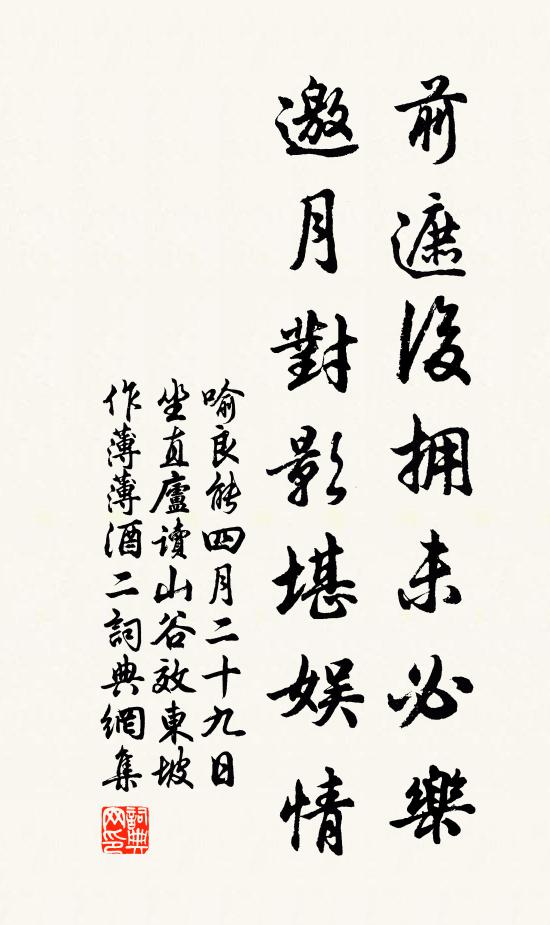 前遮後拥未必樂
邀月對影堪娱情
喻良能四月二十九日
坐直廬讀山谷效東坡
作薄薄酒二詞典網集
詞典
网印